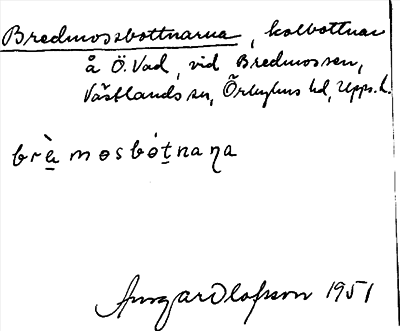 Bredmossbottnarna, kolbottnar
å Ö. Vad, vid Bredmossen,
Västlands sn, Örbyhus hd, Upps. l.
brè̱mosbót̠naṇa
Ansgar Olofsson 1951